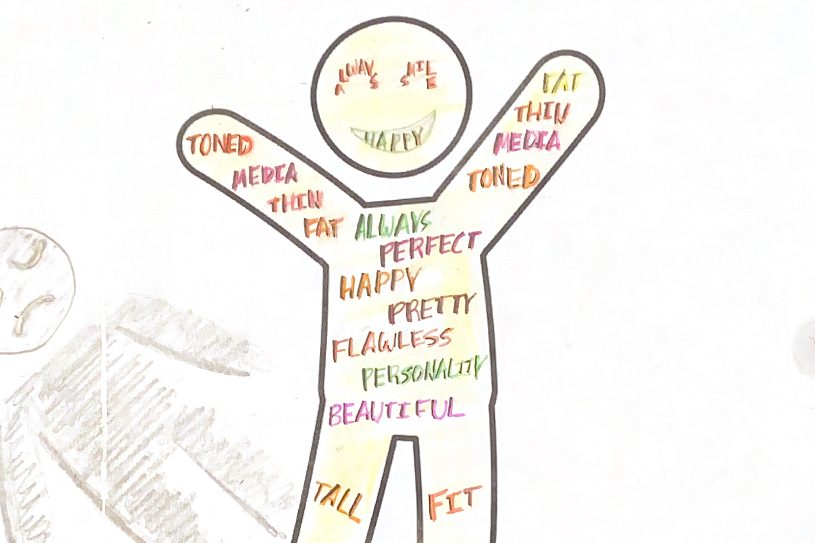 ALWAYS SMILE
HAPPY
TONED
MEDIA
THIN
FAT
FAT
THIN
MEDIA
TONED
ALWAYS
PERFECT
HAPPY
PRETTY
FLAWLESS
PERSONALITY
BEAUTIFUL
TALL
FIT